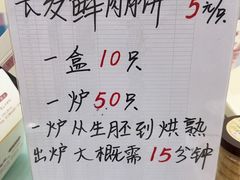 长发鲜肉月饼 5元/只
一盒10只
一炉50只
一炉从生胚到烘熟
出炉大概需15分钟